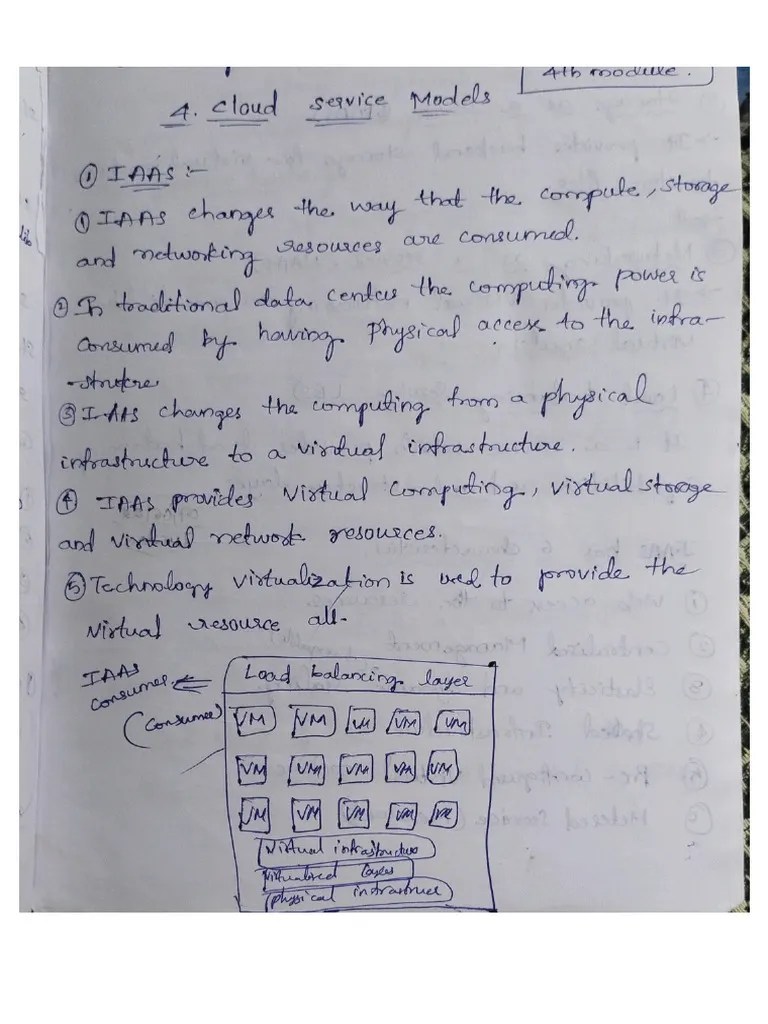 4th module.
4. Cloud Service Models
① IAAS :-
① IAAS changes the way that the compute, storage
and networking resources are consumed.
② In traditional data centers the computing power is
consumed by having physical access to the infra-
-structure
③ IAAS changes the computing from a physical
infrastructure to a virtual infrastructure.
④ IAAS provides virtual computing, virtual storage
and virtual network resources.
⑤ Technology virtualization is used to provide the
virtual resource all.
IAAS
consumer
(consumer)
Load balancing layer
VM VM VM VM VM
VM VM VM VM VM
VM VM VM VM VM
virtual infrastructure
virtualized layer
physical infrastructure